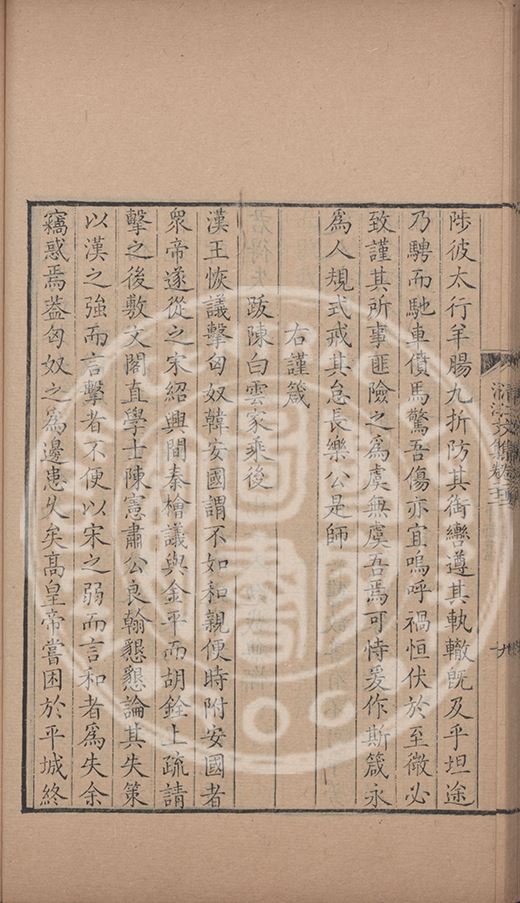 陟彼太行羊腸九折防其銜轡遵其軌轍既及乎坦途
乃騁而馳車僨馬驚吾傷亦宜嗚呼禍恒伏於至微必
致謹其所事匪險之為虞無虞吾焉可恃爰作斯箴永
為人規式戒其怠長樂公是師
右謹箴
跋陳白雲家乘後
漢王恢議擊匈奴韓安國謂不如和親便時附安國者
衆帝遂從之宋紹興間秦檜議與金平而胡銓上疏請
擊之後敷文閣直學士陳憲肅公良翰懇懇論其失策
以漢之強而言擊者不便以宋之弱而言和者為失余
竊惑焉葢匈奴之為邊患久矣髙皇帝嘗困於平城終